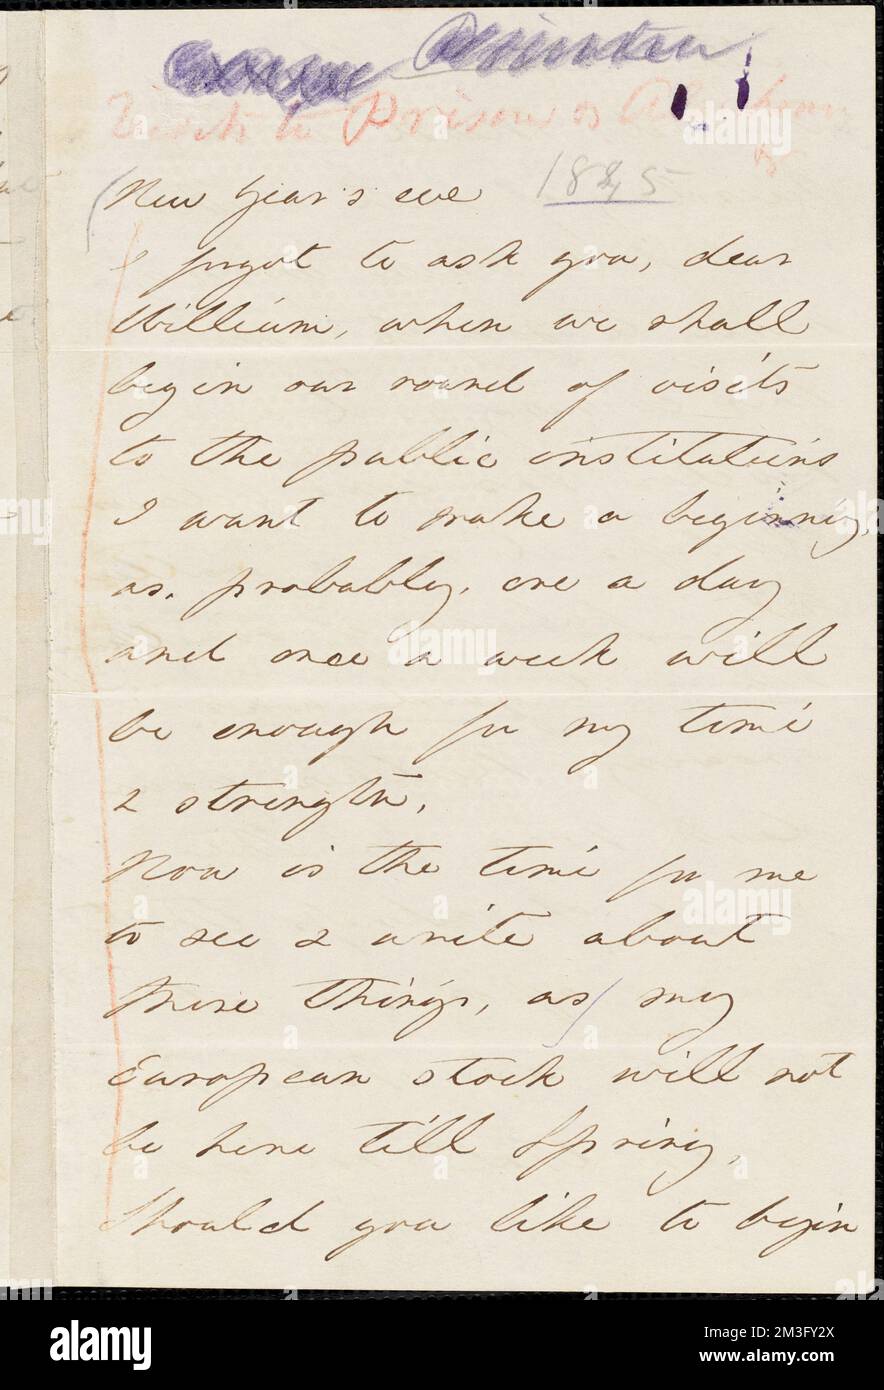 Visits to Prisons
New Year's eve 1845
I forgot to ask you, dear
William, when we shall
begin our round of visits
to the public institutions
I want to make a beginning,
as, probably, one a day
and once a week will
be enough for my time
& strength.
Now is the time for me
to see & write about
these things, as my
European stock will not
be here till Spring.
Should you like to begin
alamy
Image ID: 2M3FY2X
www.alamy.com